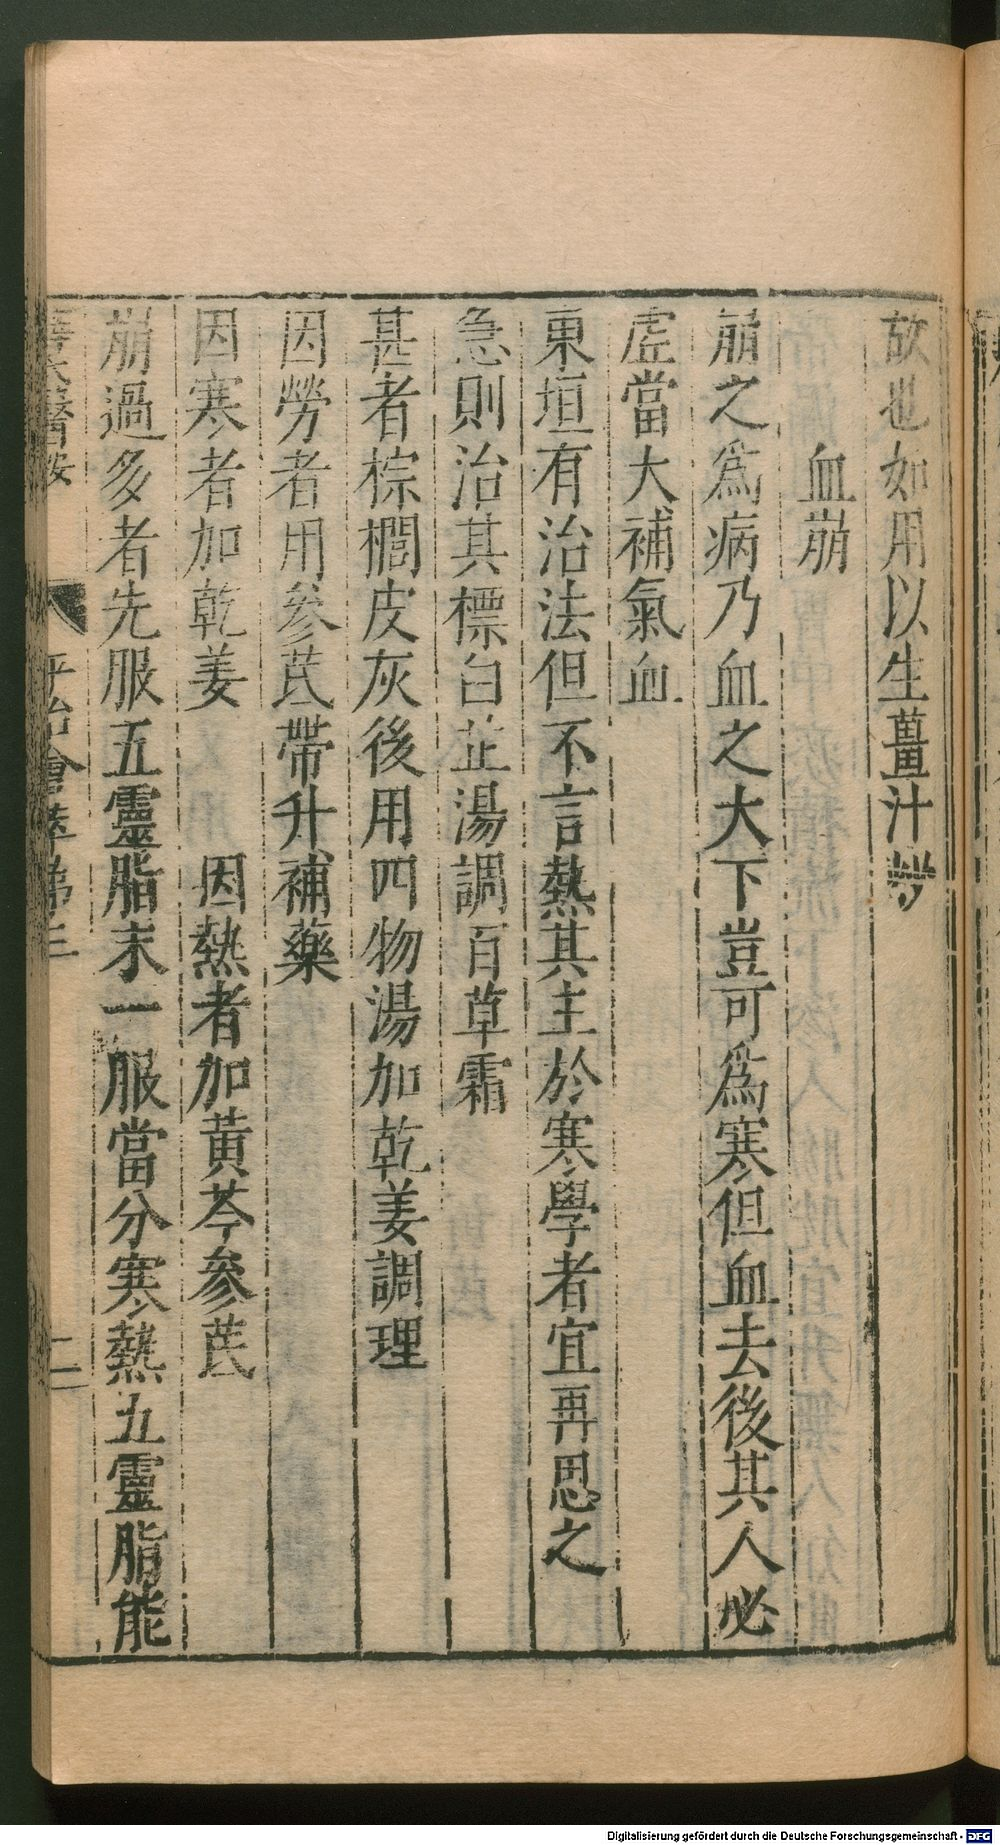 故也如用以生薑汁炒
血崩
崩之為病乃血之大下豈可為寒但血去後其人必
虛當大補氣血
東垣有治法但不言熱其主於寒學者宜再思之
急則治其標白芷湯調百草霜
甚者棕櫚皮灰後用四物湯加乾姜調理
因勞者用參芪帶升補藥
因寒者加乾姜　因熱者加黃芩參芪
崩過多者先服五靈脂末一服當分寒熱五靈脂能
醫按
平治會萃第三
二
Digitalisierung gefördert durch die Deutsche Forschungsgemeinschaft - DFG